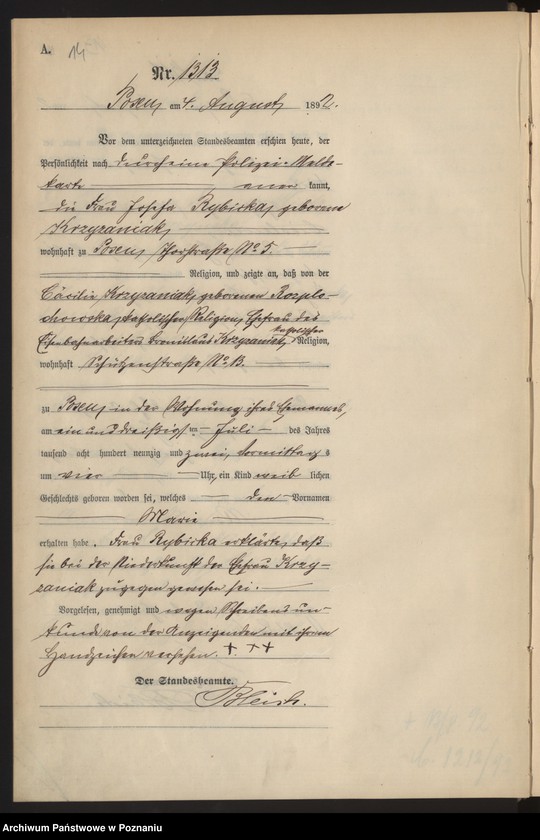 A.
14
Nr. 1313.
Posen, am 4. August 1892.
Vor dem unterzeichneten Standesbeamten erschien heute, der
Persönlichkeit nach durch eine Polizei-Melde-
karte aner kannt,
die Frau Josefa Rybicka, geborene
Krzyzaniak,
wohnhaft zu Posen, Thorstraße No 5.
Religion, und zeigte an, daß von der
Cäcilie Krzyzaniak, geborenen Rozplo-
chowska, katholischer Religion, Ehefrau des
katholischer
Eisenbahnarbeiters Bronislaus Krzyzaniak, Religion,
wohnhaft Schützenstraße No
zu Posen, in der Wohnung ihres Ehemannes,
am ein und dreißigsten Juli des Jahres
tausend acht hundert neunzig und zwei, Vormittags
um vier Uhr, ein Kind weib lichen
Geschlechts geboren worden sei, welches den Vornamen
Marie
erhalten habe. Frau Rybicka erklärte, daß
sie bei der Niederkunft der Ehefrau Krzy-
zaniak zugegen gewesen sei.
Vorgelesen, genehmigt und wegen Schreibens un-
kunde von der Anzeigenden mit ihrem
Handzeichen versehen. + ++
Der Standesbeamte.
Archiwum Państwowe w Poznaniu